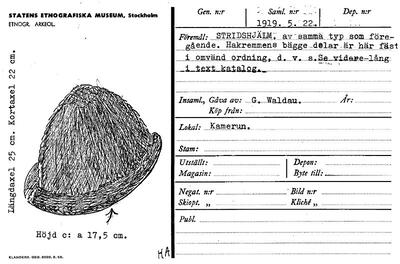 STATENS ETNOGRAFISKA MUSEUM, Stockholm
ETNOGR. ARKEOL.
Längdaxel 25 cm. Kortaxel 22 cm.
Höjd c: a 17,5 cm.
HA
Gen. n:r
Saml. n:r
Dep. n:r
1919. 5. 22.
Föremål: STRIDSHJÄLM, av samma typ som före-
gående. Hakremmens bägge delar är här fäst
i omvänd ordning, d. v. s. Se vidare lång
i text katalog.
Insaml., Gåva av: G. Waldau. År:
Köp från:
Lokal: Kamerun.
Stam:
Utställt:
Depon:
Magasin:
Byte till:
Negat. n:r
Bild n:r
Skiopt. »
Kliché »
Publ.